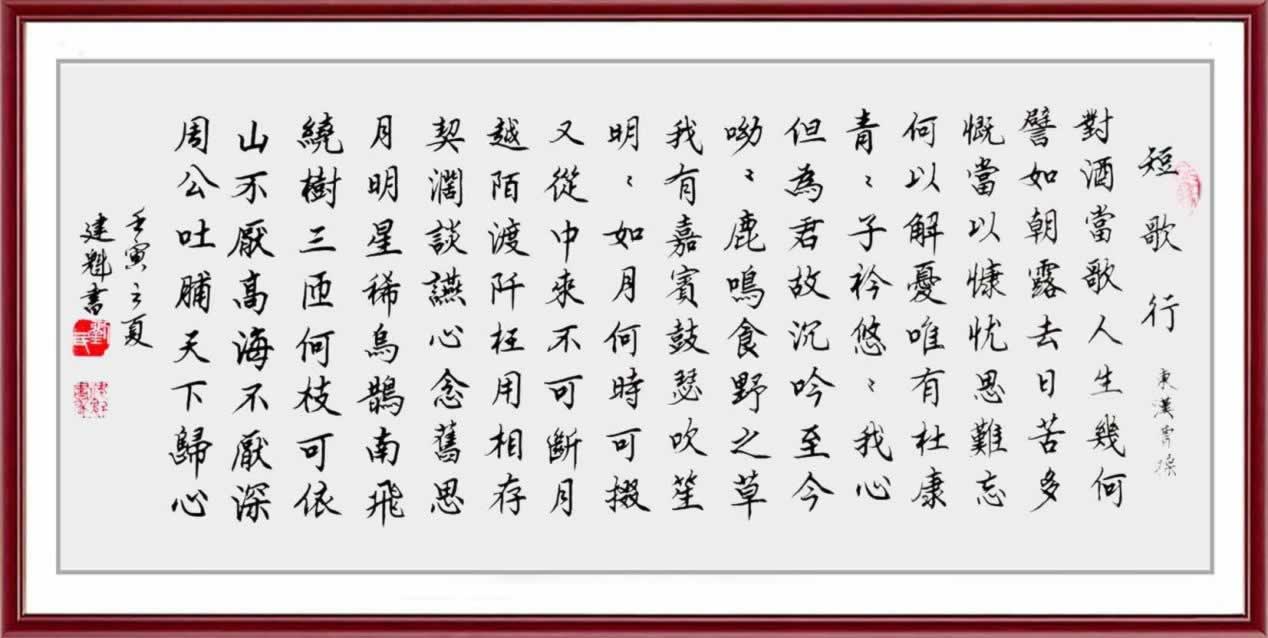 短歌行 東漢曹操
對酒當歌人生幾何
譬如朝露去日苦多
慨當以慷忧思難忘
何以解憂唯有杜康
青〻子衿悠〻我心
但為君故沉吟至今
呦〻鹿鳴食野之草
我有嘉賓鼓瑟吹笙
明〻如月何時可掇
又從中來不可断月
越陌渡阡枉用相存
契濶談讌心念舊思
月明星稀烏鵲南飛
繞樹三匝何枝可依
山不厭高海不厭深
周公吐脯天下歸心
壬寅之夏
建魁書